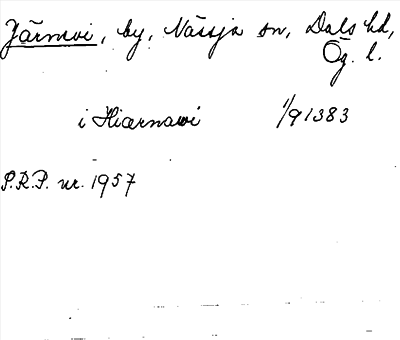 Järnevi, by, Nässja sn, Dals hd,
Ög. l.
i Hiærnawi 1/9 1383
P.R.P. nr. 1957